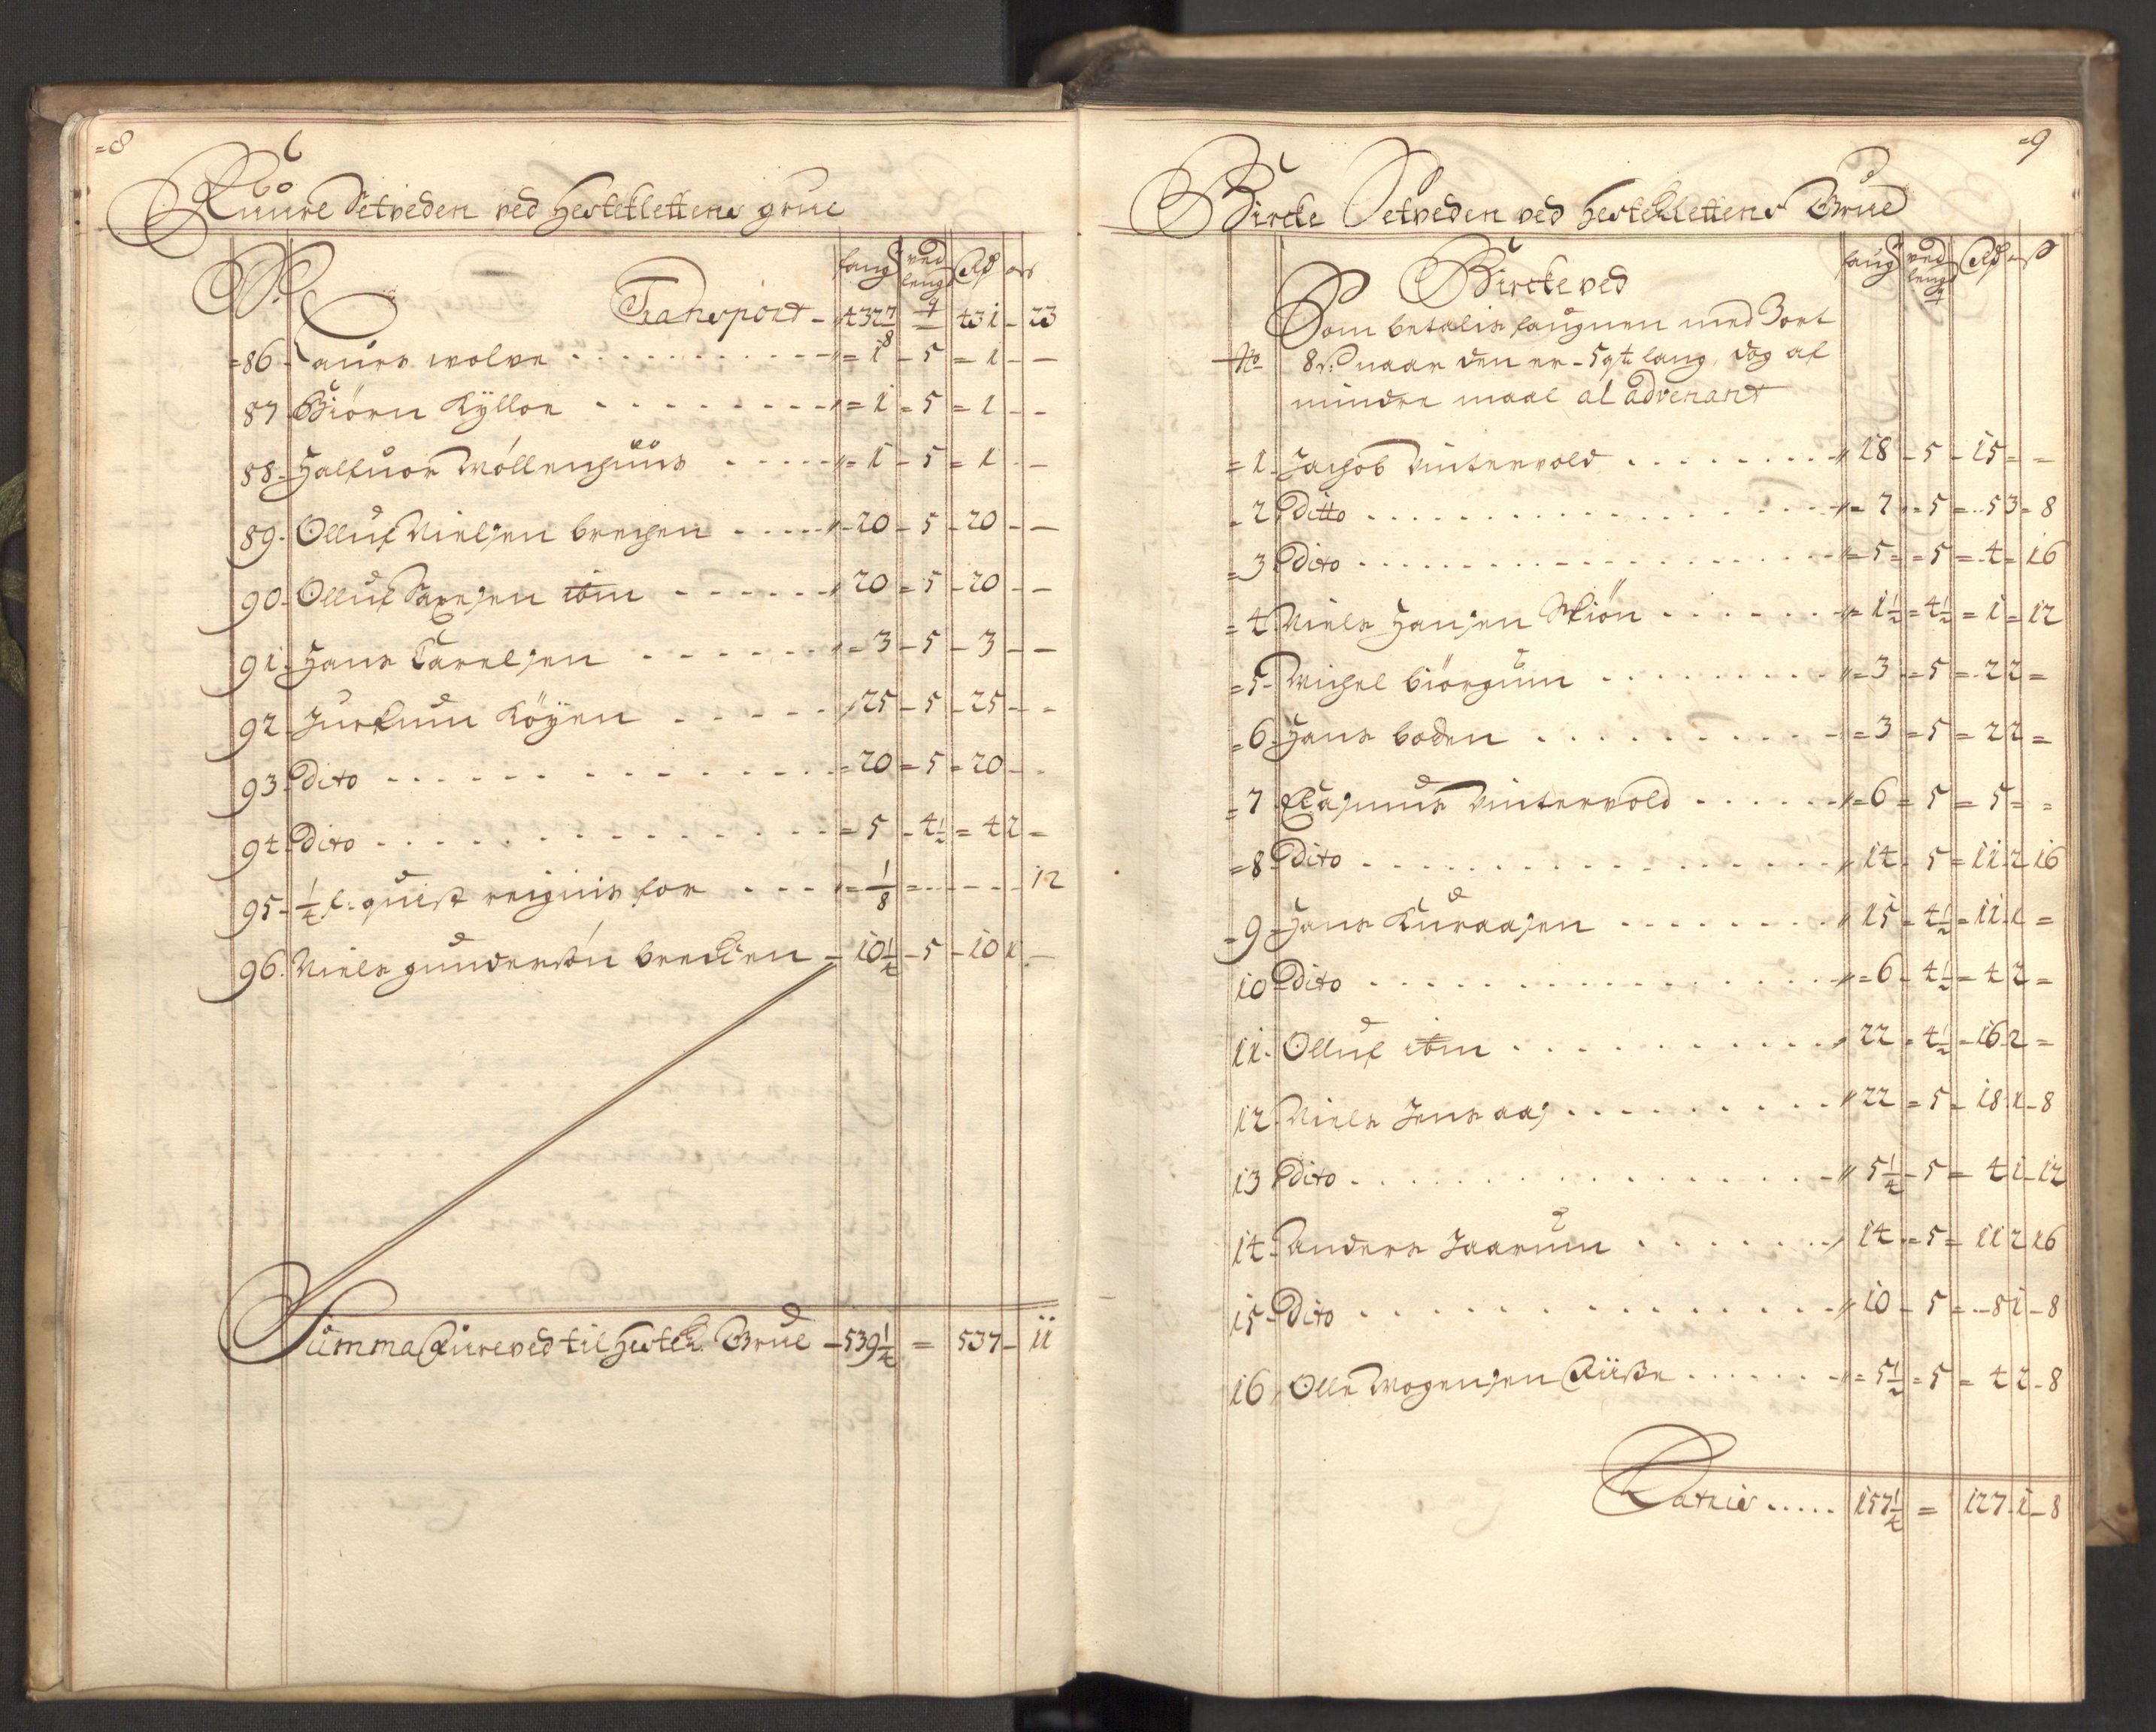 =8
Fuure Setveden ved Hesteklettens grue
No fauğ ved lengd Rd ort ß
Transport - 432 7/8 - 4 - 431 - 23
=86 - Laurs wolve - - - = 1 - 5 = 1 - -
87 Biörn Kÿlloe - - - = 1 = 5 = 1 - -
88 - Halfuor Möllenhuus - - - = 1 - 5 = 1 - -
89 - Olluf Nielsen brechen - - - 20 - 5 - 20 - -
90 - Olluf Saxesen ibm - - - 20 = 5 - 20 - -
91 - Hans Carelsen - - - 3 - 5 - 3 - -
92 - Jurfum Köÿen - - - 25 - 5 - 25 - -
93 - Dito - - - = 20 = 5 = 20 - -
94 - Dito - - - = 5 - 4½ = 4 2 =
95 - ¼ f. quist reignis for - - - = 1/8 = - - - 12
96 - Niels gundersön brecken - 10¼ - 5 - 10 1 -
Summa Fuureved til Hestek. Grue - 539¼ = 537 - 11
=9
Bircke Setveden ved Hesteklettens Grue
fauğ ved lengd q Rd ort ß
Bircke ved
Som betalis faugnen med 3 ort
No 8 ß: naar den er - 5 qt: lang, dog af
mindre maal al advenant
= 1 - Jachob Vintervold - - - 18 - 5 - 15 = =
= 2 Ditto - - - = 7 = 5 = 5 3 = 8
= 3 Dito - - - = 5 = = 5 = 4 = 16
= 4 Niels Hansen Skiön - - - = 1½ = 4½ = 1 = 12
= 5 - Michel Biörgum - - - = 3 = 5 = 2 2 =
= 6 - Hans boden - - - = 3 = 5 = 2 2 =
= 7 Rasmus Vintervold - - - = 6 = 5 = 5 = =
= 8 Dito - - - 14 - 5 = 11 2 16
- 9 - Hans Kuraasen - - - 15 = 4½ = 11 1 =
10 Dito - - - = 6 - 4½ = 4 2 =
11 - Olluf ibm - - - 22 = 4½ - 16 2 =
12 - Niels Jens aas - - - 22 = 5 - 18 1 - 8
13 Dito - - - 5¼ - 5 = 4 1 - 12
14 - Anders Jaarum - - - 14 = 5 = 11 2 16
15 - Dito - - - 10 - 5 = 8 1 - 8
16 Olle Mogensen Riiße - - - = 5½ = 5 = 4 2 - 8
Latris ..... 157¼ = 127 - 1 - 8